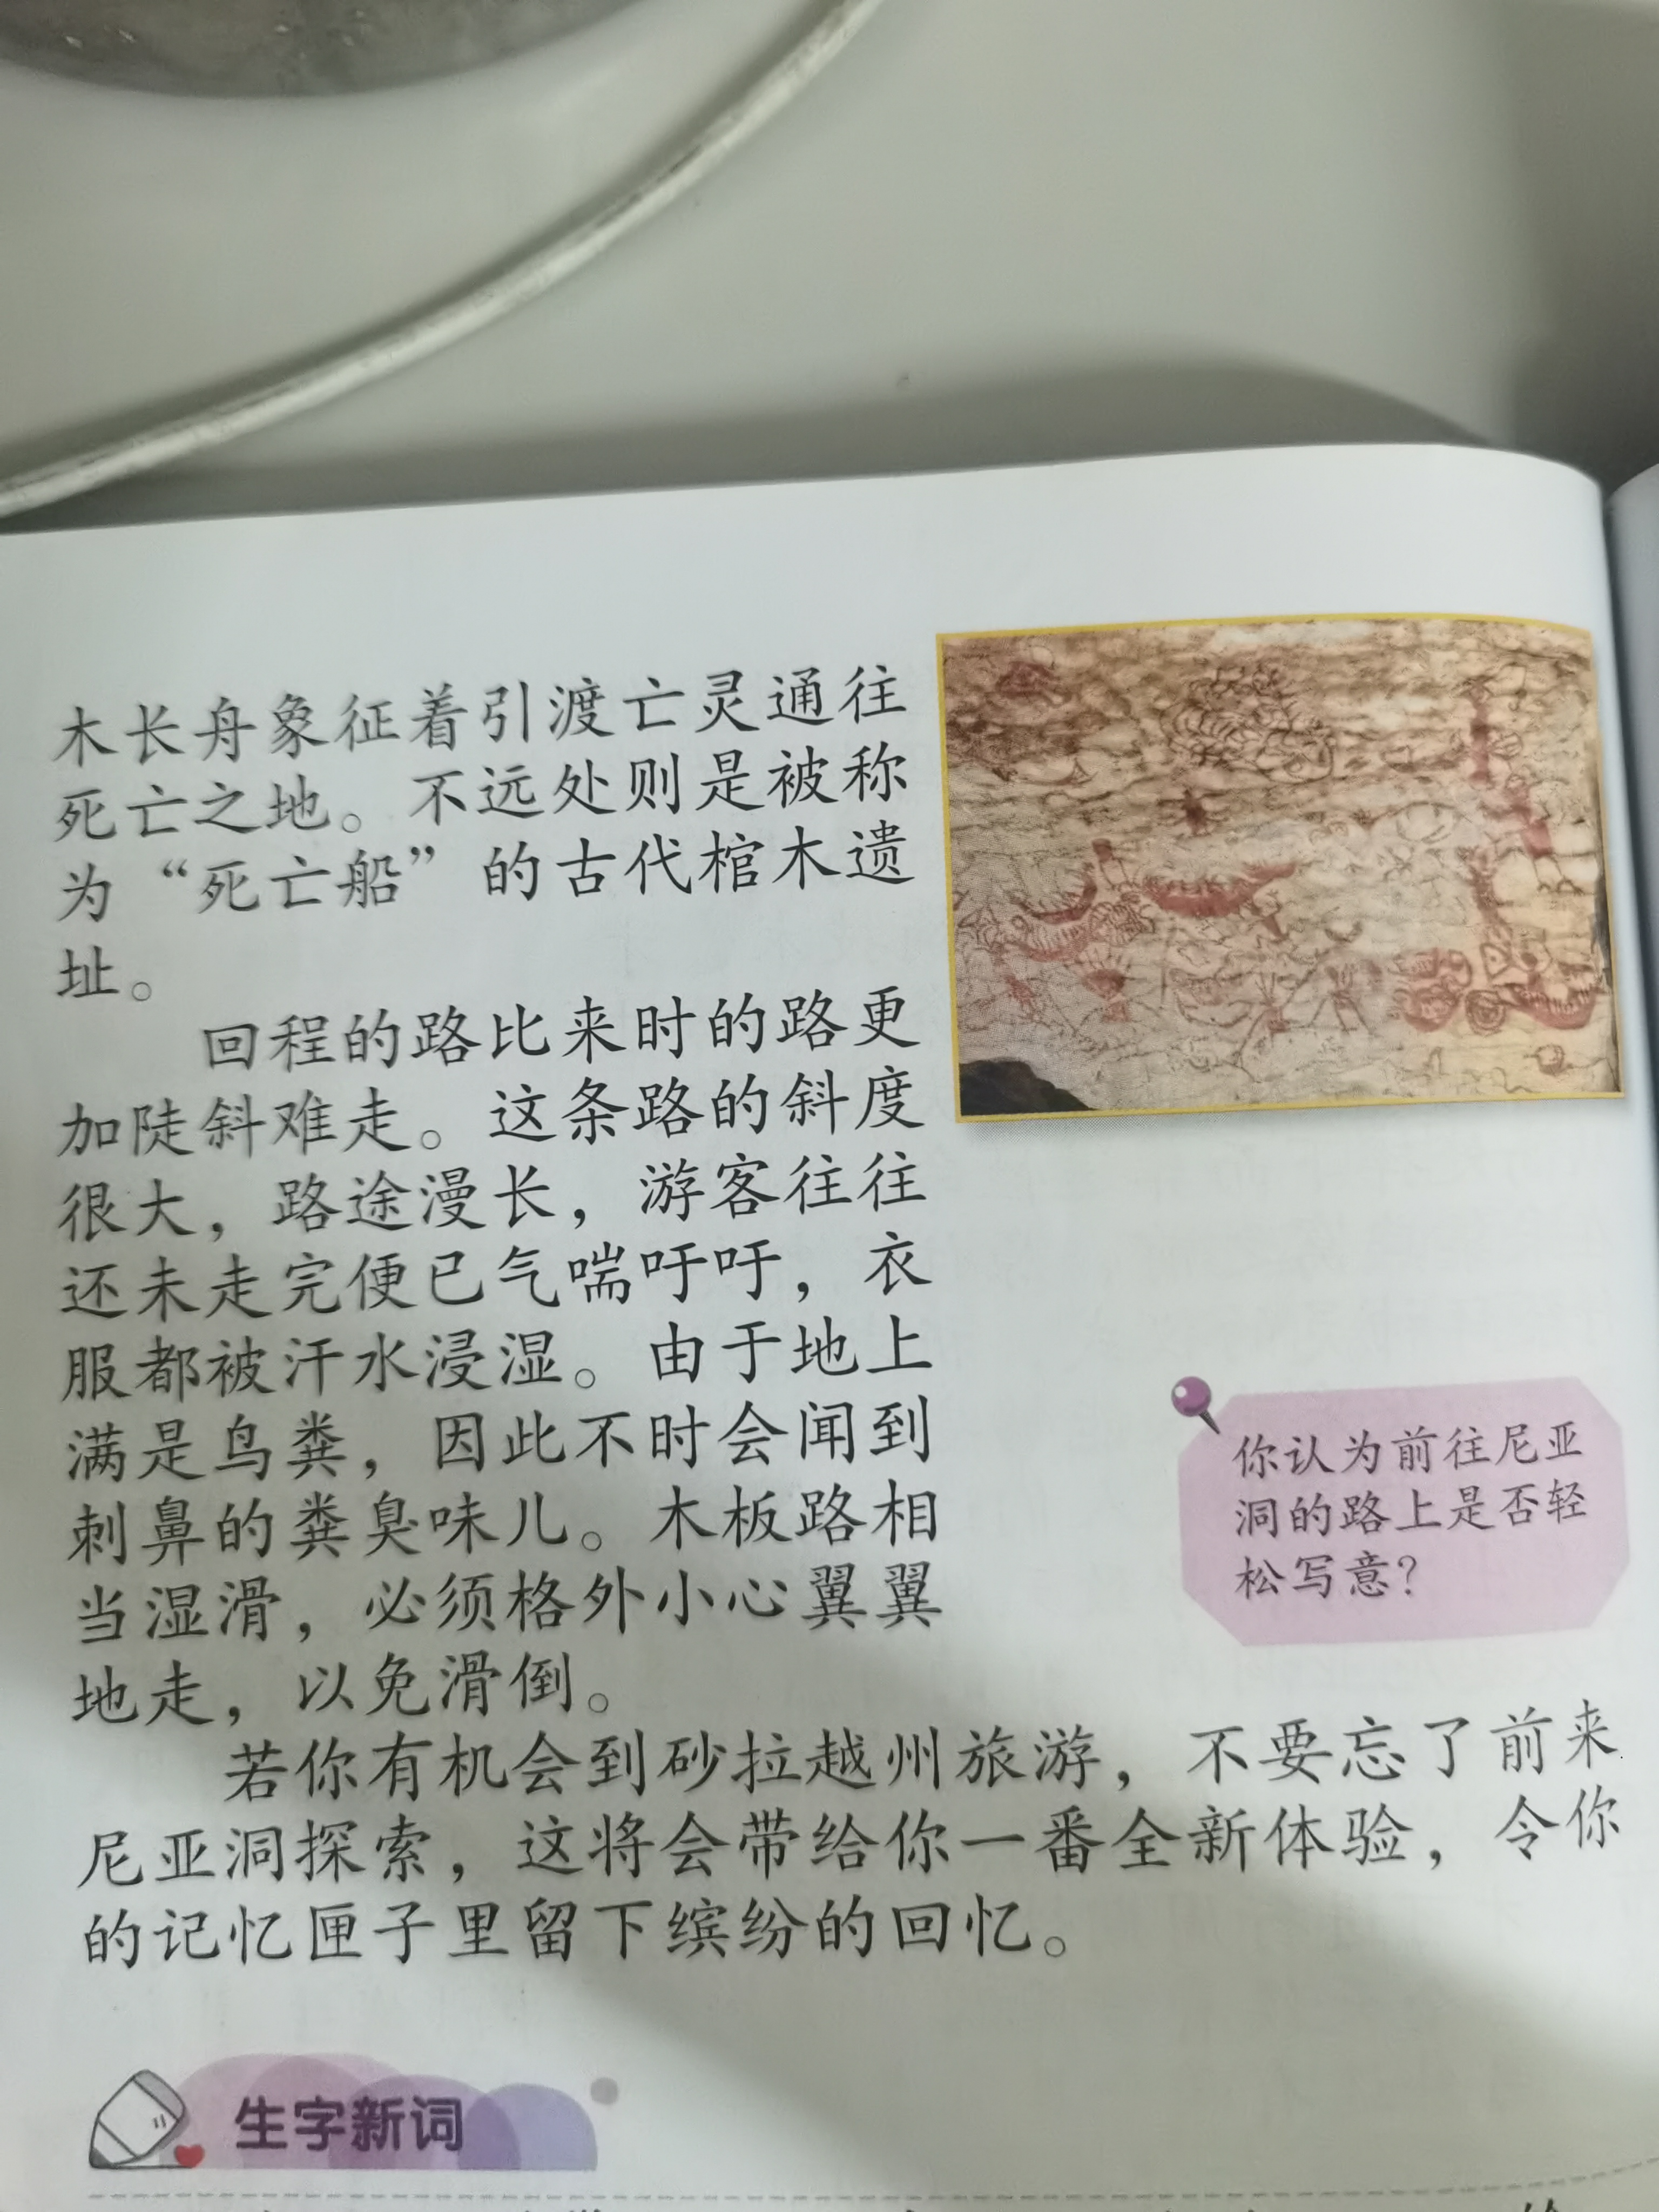 木长舟象征着引渡亡灵通往
死亡之地。不远处则是被称
为“死亡船”的古代棺木遗
址。
回程的路比来时的路更
加陡斜难走。这条路的斜度
很大，路途漫长，游客往往
还未走完便已气喘吁吁，衣
服都被汗水浸湿。由于地上
满是鸟粪，因此不时会闻到
刺鼻的粪臭味儿。木板路相
当湿滑，必须格外小心翼翼
地走，以免滑倒。
你认为前往尼亚
洞的路上是否轻
松写意？
若你有机会到砂拉越州旅游，不要忘了前来
尼亚洞探索，这将会带给你一番全新体验，令你
的记忆匣子里留下缤纷的回忆。
生字新词